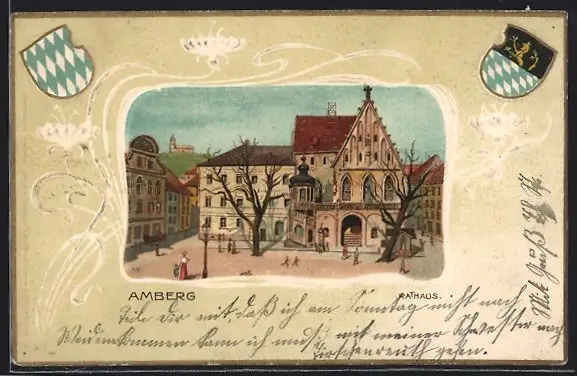 AMBERG
RATHAUS.
Teile Dir mit, daß ich am Sonntag nicht nach
Weiden kommen kann ich muß mit meiner Schwester nach
Tirschenreuth gehen.
Mit Gruß